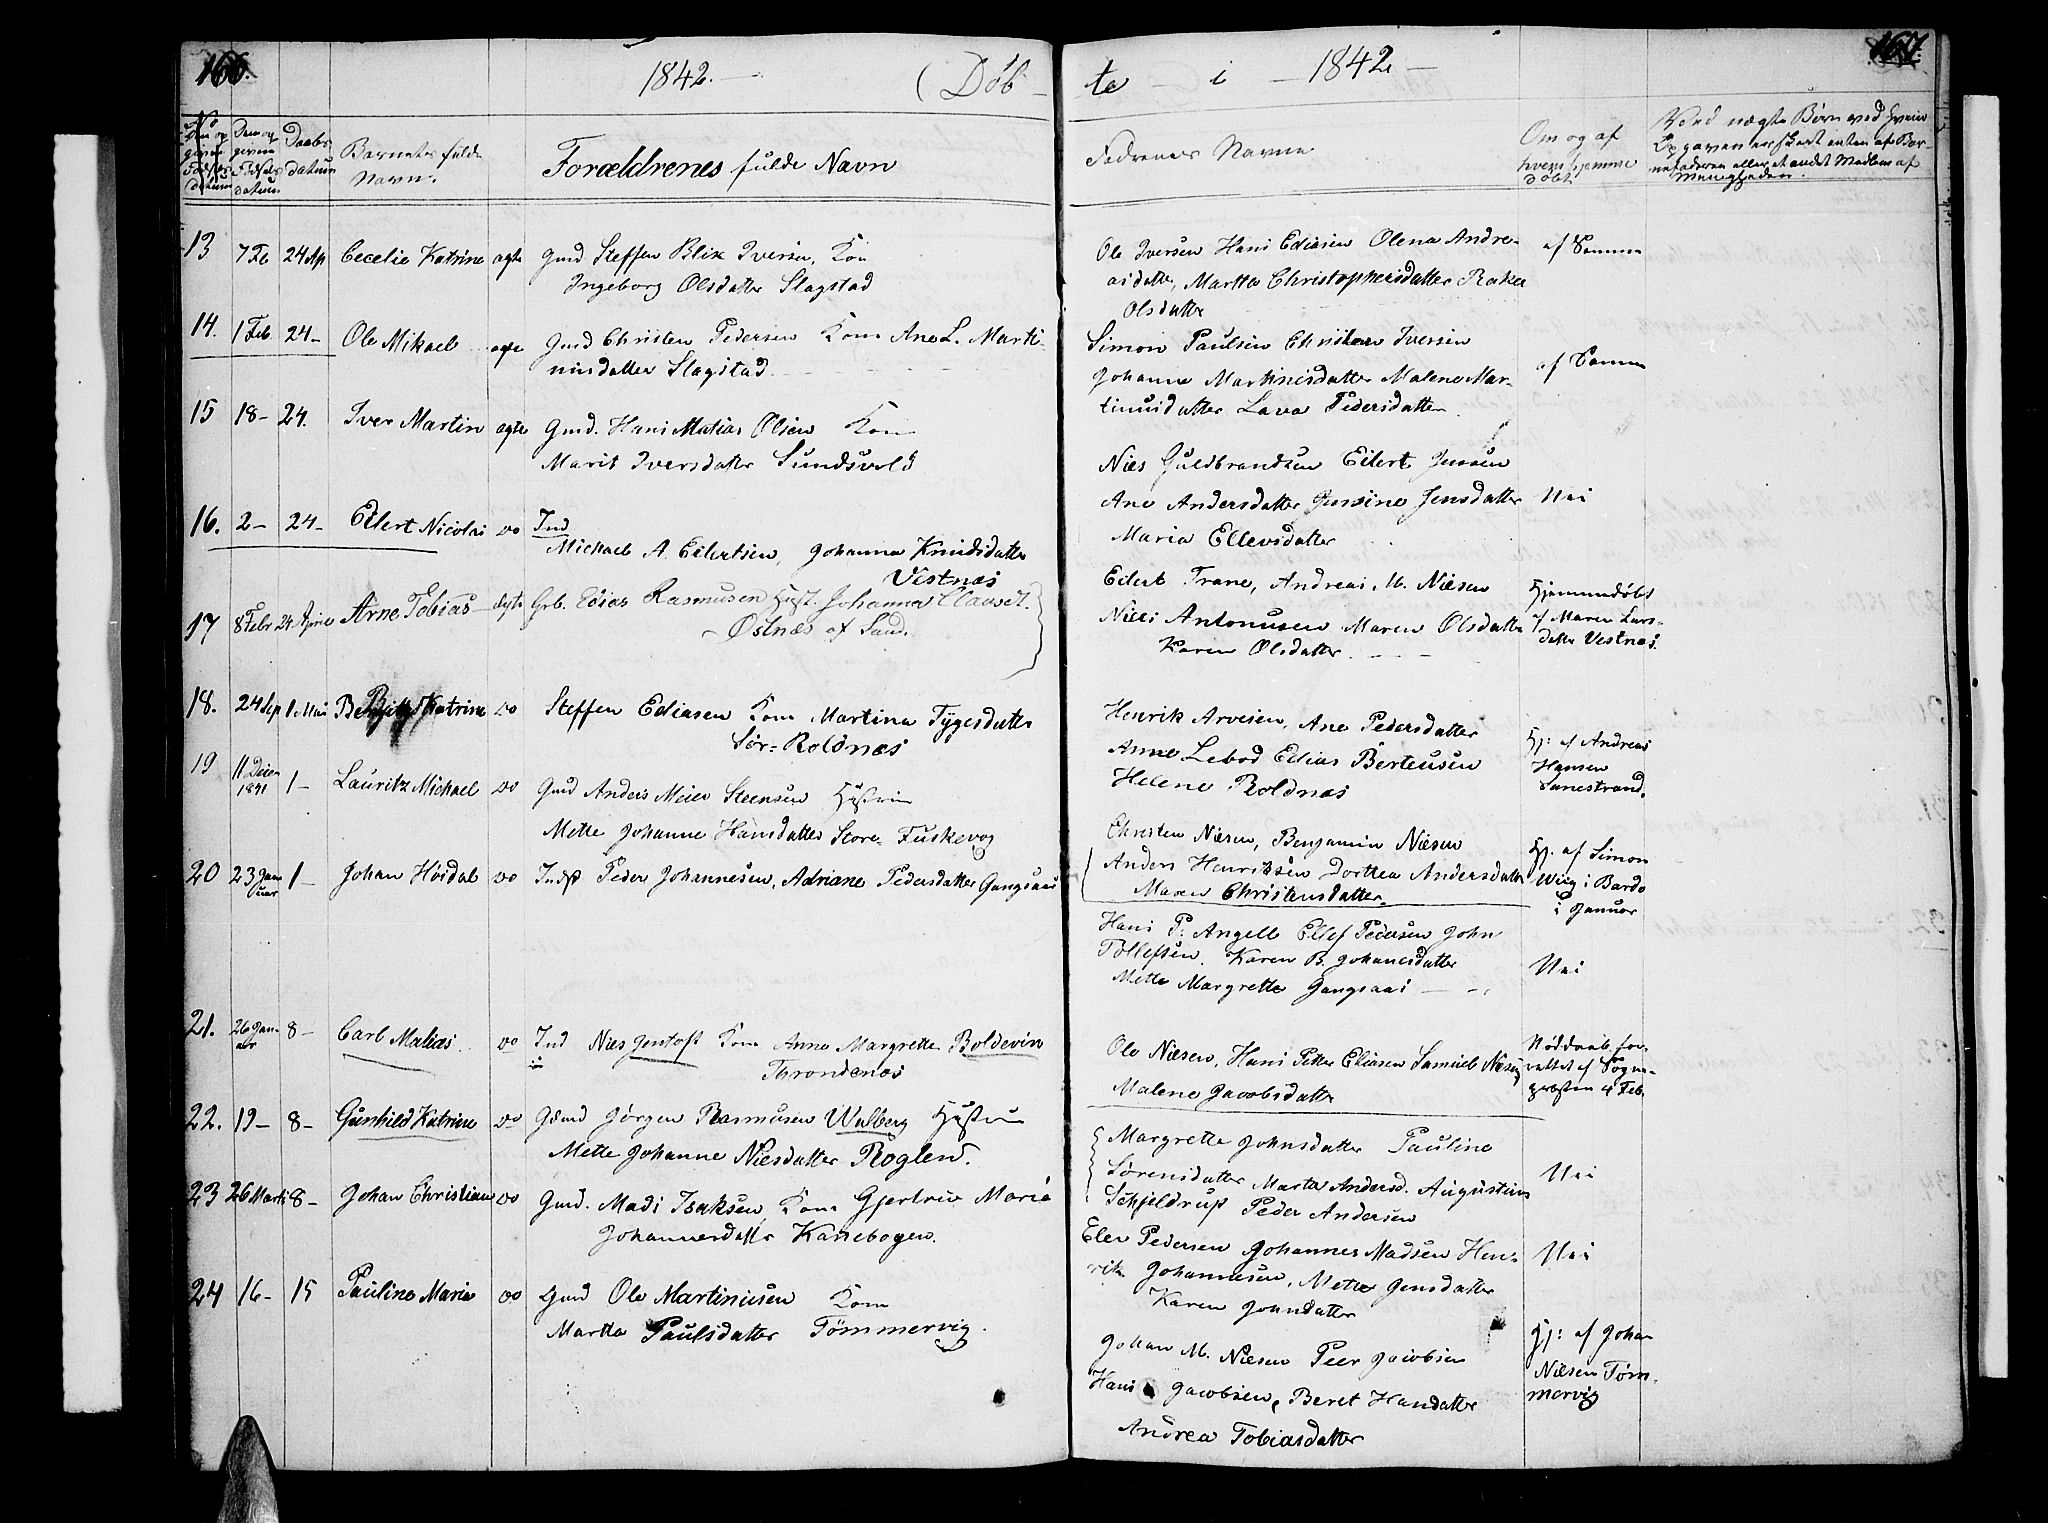 166.
1842. (Døb-
te i 1842
167.
No
Daabs datum
Barnets fulde Navn.
Forældrenes fulde Navn
Faddernes Navne
Om og af hvem hjemme døbt
13 7 Fe 24 Ap Cecelie Katrine ægte Gmd Steffen Blix Iversen, Kon
Ingeborg Olsdatter Slagstad
Ole Iversen Hans Ediasen Olena Andre-
asdatter, Martha Christophersdatter Rakel
Olsdatter
af Samme
14. 1 Feb. 24- Ole Mikael ægte Gmd Christen Pedersen Kone Ane L. Marti-
nusdatter Slagstad
Simon Paulsen Christen Iversen
Johanna Martinusdatter Malene Mar-
tinusdatter Lava Pedersdatter
af Samme
15 18- 24. Iver Martin ægte Gmd. Hans Matias Olsen Kone
Marit Iversdatter Sundsvold
Niels Guldbrandsen Eilert Jensen
Ane Andersdatter Jensine Jensdatter
Maria Ellevsdatter
Nei
16. 2- 24- Eilert Nicolai do Ind
Michael A Eilertsen, Johanna Knudsdatter
Vestnæs
Eilert Trane, Andreas M. Nilsen
Niels Antonusen Maren Olsdatter
Karen Olsdatter
Hjemmedøbt
af Maren Lars-
datter Vestnæs.
17 8 Febr 24 April Arne Tobias ægte Grb. Edias Rasmusen Hust. Johanna Clausdt.
Østnæs af Sand.
18. 24 Sep 1 Mai Katrine do Steffen Ediasen Kone Martina Tygesdatter
Sør-Roldnæs
Henrik Arvesen, Ane Pedersdatter
Anne Lebod Edias Berteusen
Helene Roldnæs
Hj: af Andreas
Hansen
Sanestrand.
19 11 Decem 1841 1- Lauritz Michael do Gmd Anders Meier Steensen Hustru
Mette Johanne Hansdatter Store-Fuskevog
Christen Nilsen, Benjamin Nilsen
Anders Henriksen Dorthea Andersdatter
Maren Christensdatter.
Hj. af Simon
Wiig i Bardo
i Januar
20 23 Januar 1- Johan Høidal do Indst Peder Johannesen, Adriane Pedersdatter Gangsaas
Hans P. Angell Ellef Pedersen John
Tollefsen. Karen B. Johansdatter
Mette Margrette Gangsaas
Nei
21. 26 Januar 8- Carl Matias do Ind Nils Jentoft Kone Anne Margrette Boldevin
Throndenæs
Ole Nilsen, Hans Petter Eliasen Samuel Nilsen
Malene Jacobsdatter
Nøddaab for-
rettet af Sogne-
præsten 4 Feb.
22. 19- 8- Gunhild Katrine do Gmd Jørgen Rasmusen Wulberg Hustru
Mette Johanne Nilsdatter Roglen.
Margrette Johnsdatter Pauline
Sørensdatter Marta Andersd. Augustinus
Schjeldrup Peder Andersen
Nei
23 26 Marts 8- Johan Christian do Gmd. Mads Isaksen Kone Gjertrue Maria
Johannesdatter Kanebogen.
Elev Pedersen Johannes Madsen Hen-
rik Johannesen, Mette Jensdatter
Karen Johndatter
Nei
24 16- 15 Pauline Maria do Gmd Ole Martinusen Kone
Martha Paulsdatter Tømmervig.
Johan M. Nilsen Peer Jacobsen
Hans Jacobsen, Beret Hansdatter
Andrea Tobiasdatter
Hj: af Johan
Nilsen Tøm-
mervig